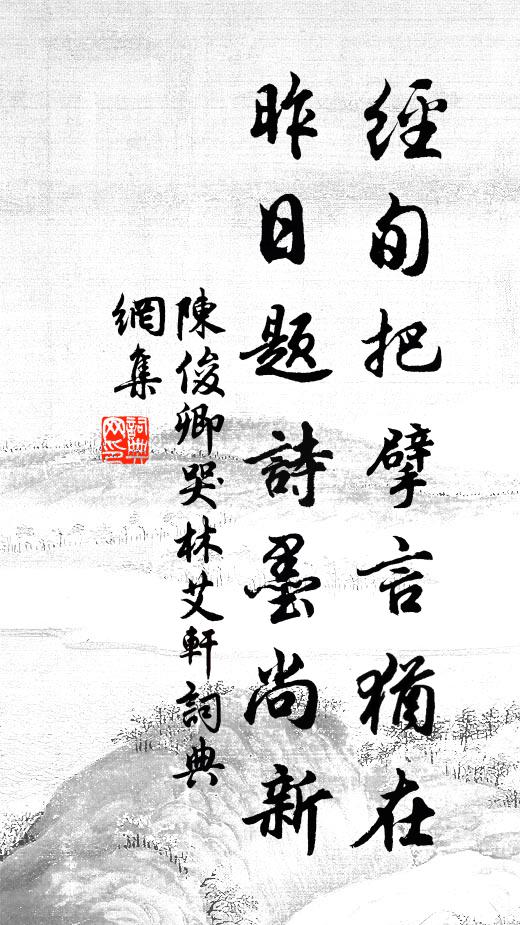 經旬把擘言猶在
昨日題詩墨尚新
陳俊卿哭林艾軒詞典
網集
詞典網印